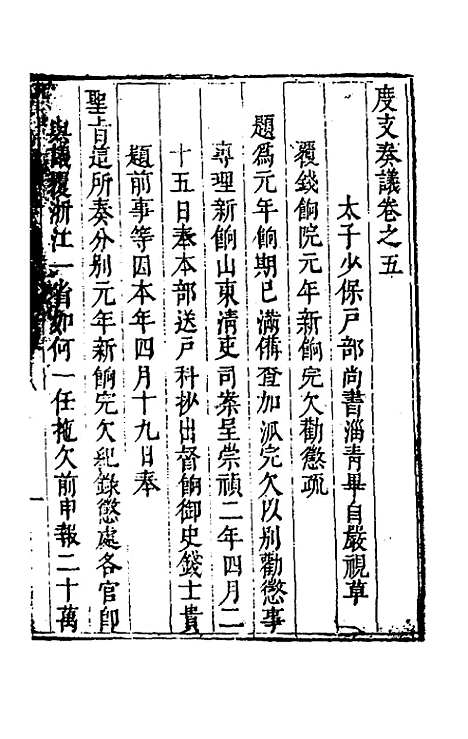 度支奏議卷之五
太子少保戸部尚書淄青畢自嚴視草
覆錢餉院元年新餉完欠勸懲疏
題爲元年餉期已滿備查加派完欠以別勸懲事
專理新餉山東清吏司案呈崇禎二年四月二
十五日奉本部送戸科抄出督餉御史錢士貴
題前事等因本年四月十九日奉
聖旨這所奏分別元年新餉完欠紀錄懲處各官卽
與議覆浙江一省如何一任拖欠前申報二十萬